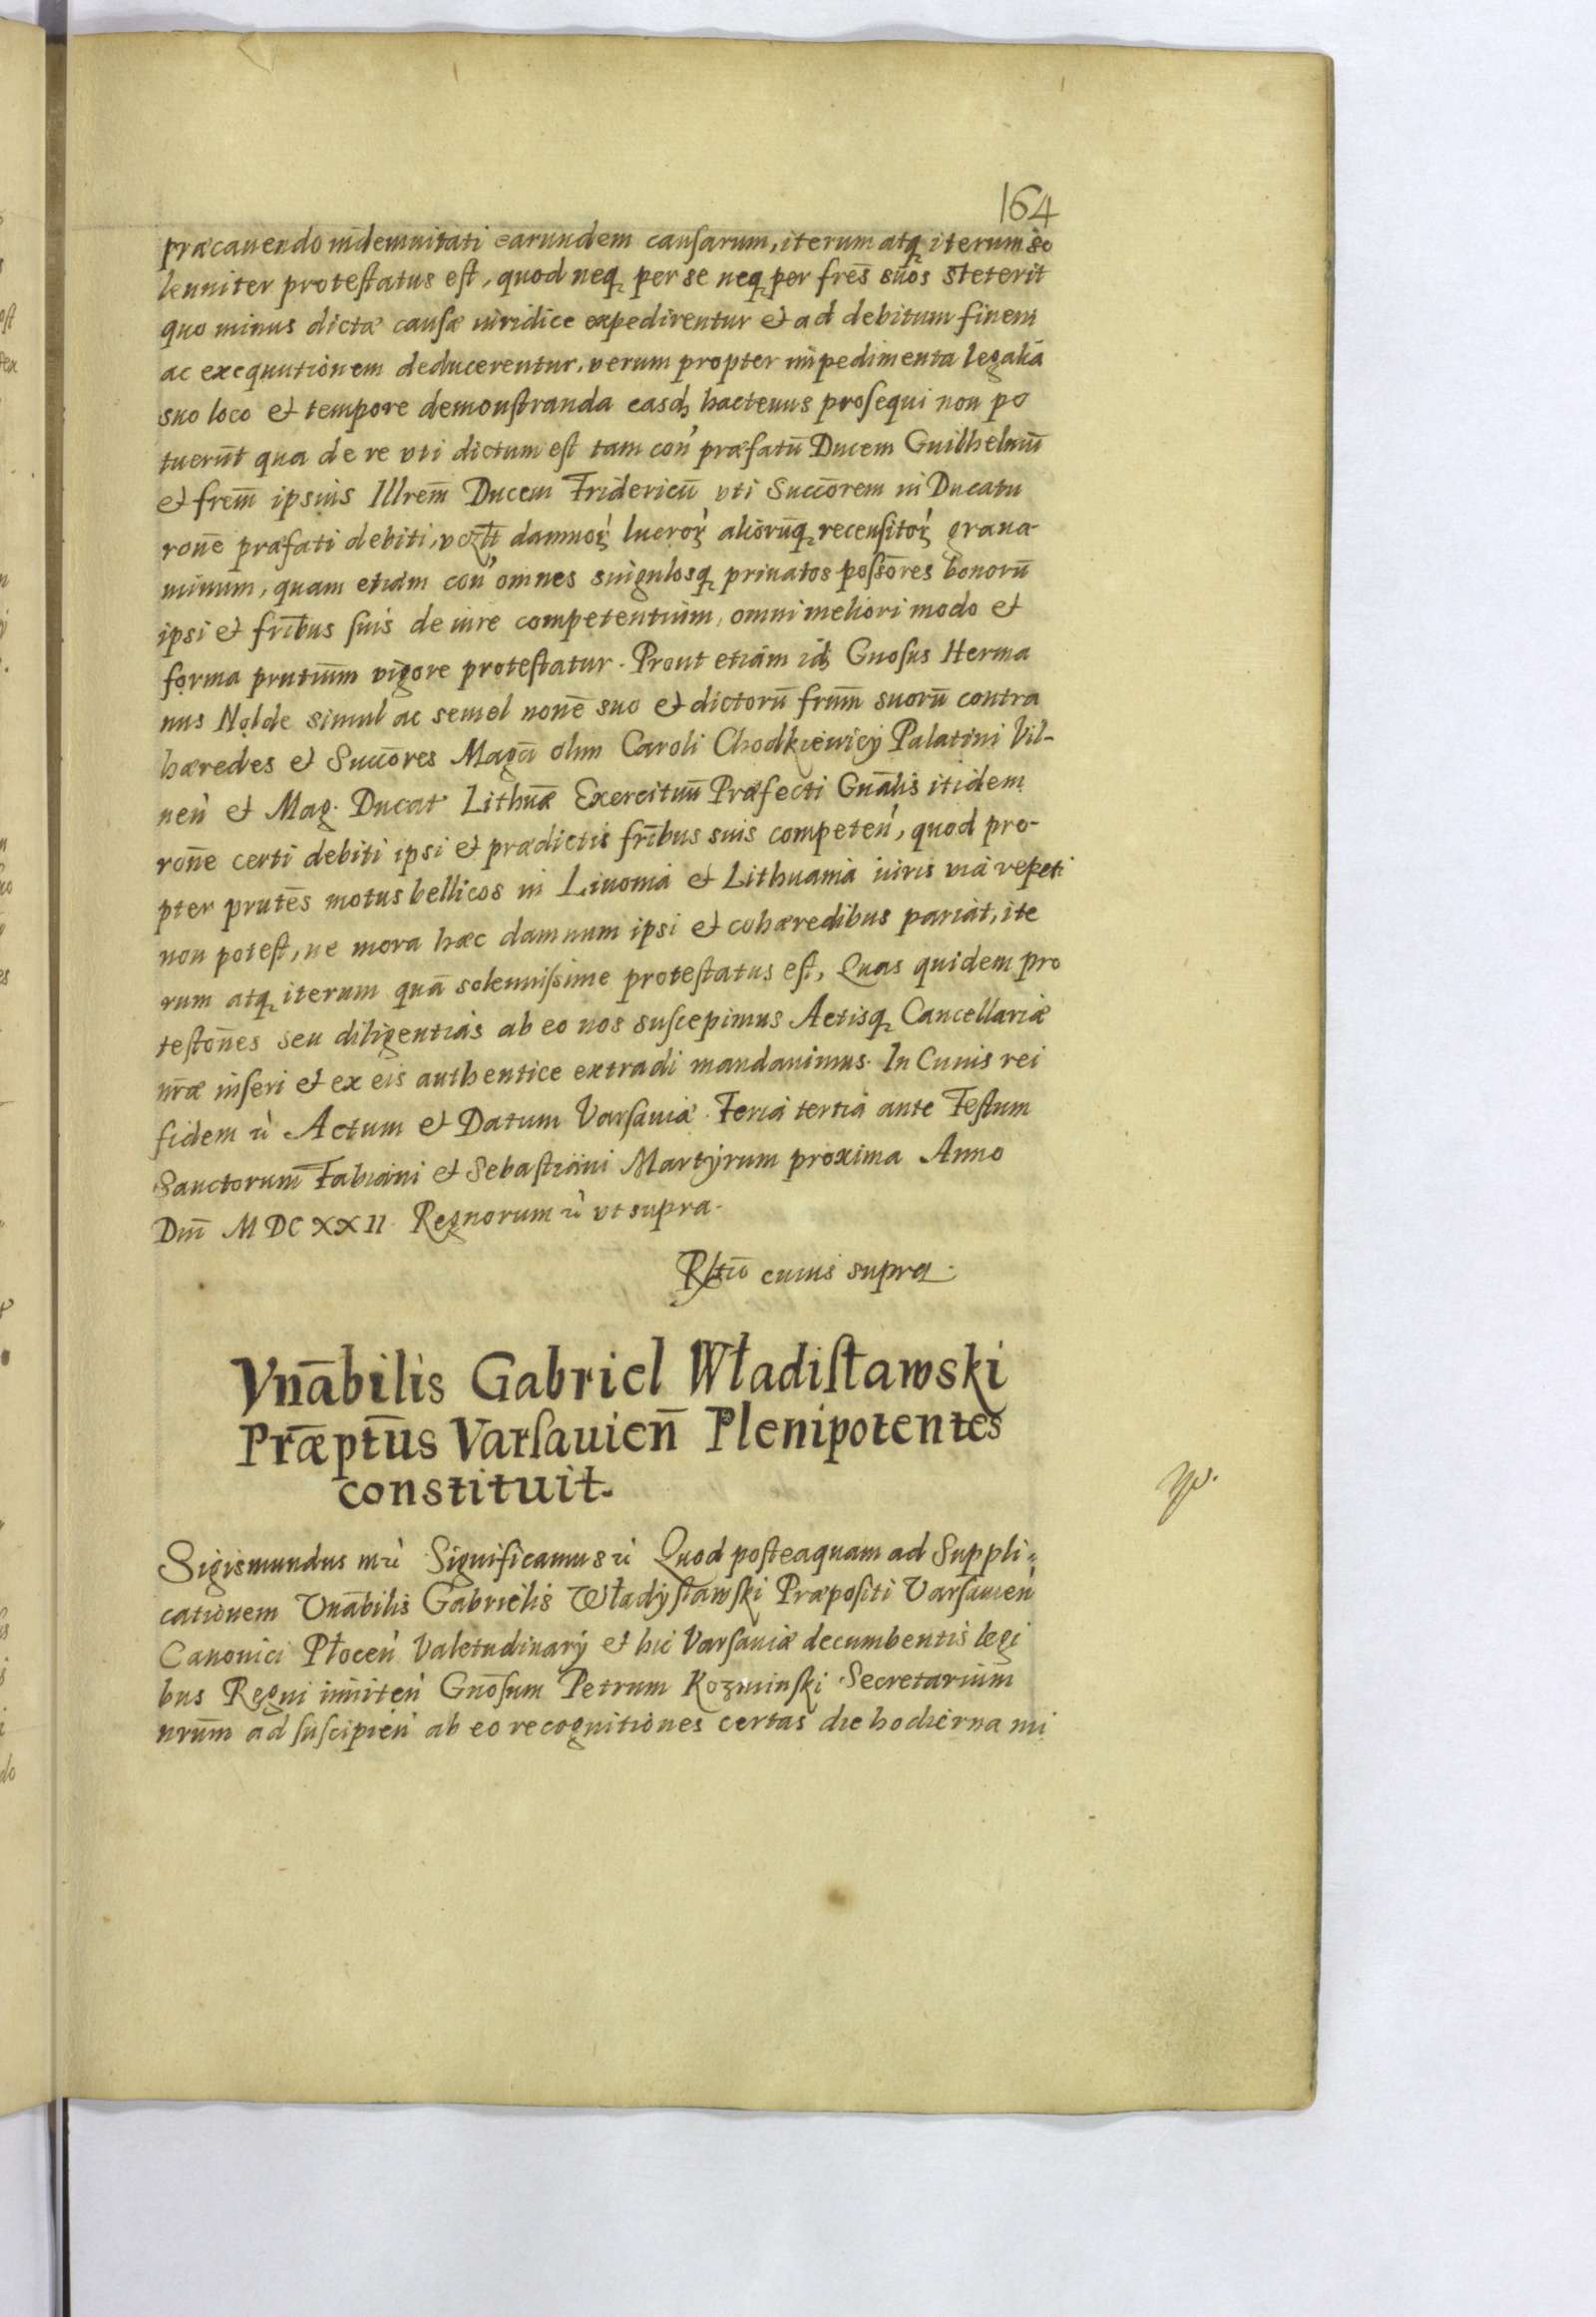 164
præcauendo indemnitati earundem causarum, iterum atq iterum so
lenniter protestatus est, quod neq per se neq per frēs suos steterit
quo minus dictæ causæ iuridice expedirentur et ad debitum finem
ac exequutionem deducerentur, verum propter impedimenta legalia
suo loco et tempore demonstranda easd hactenus prosequi non po
tuerūt qua de re vti dictum est tam con præfatū Ducem Guilhelmū
et frem̄ ipsius Illrem̄ Ducem Fridericū vti Succōrem in Ducatu
rone præfati debiti, damnoꝝ lucroꝝ aliorūq recensitoꝝ graua
minum, quam etiam con omnes singulosq priuatos possōres bonorū
ipsi et fribus suis de iure competentium, omni meliori modo et
forma pr̄ntium vigore protestatur. Prout etiam id Gnosus Herma
nus Nolde simul ac semel noñe suo et dictorū frum̄ suorū contra
hæredes et Succōres Magci olim Caroli Chodkiewicy Palatini Vil-
nen et Mag. Ducat Lithuæ Exercituū Præfecti Gnālis itidem
rone certi debiti ipsi et prædictis fribus suis competen, quod pro-
pter pr̄ntes motus bellicos in Liuonia et Lithuania iuris via repeti
non potest, ne mora hæc damnum ipsi et cohæredibus pariat, ite
rum atq iterum quā solennissime protestatus est, Quas quidem pro
testoñes seu diligentias ab eo nos suscepimus Actisq Cancellariæ
nr̄æ inseri et ex eis authentice extradi mandauimus. In Cuius rei
fidem ꝛc Actum et Datum Varsauiæ Feria tertia ante Festum
Sanctorum Fabiani et Sebastiani Martyrum proxima Anno
Dnī MDCXXII. Regnorum ꝛc vt supra.
Rltio cuius supra.
Vnābilis Gabriel Władisławski
Præptūs Varsauien̄ Plenipotentes
constituit.
Sigismundus ꝛc Significamus ꝛc Quod posteaquam ad Suppli=
cationem Vnābilis Gabrielis Władysławski Præpositi Varsauien
Canonici Płocen Valetudinary et hic Varsauiæ decumbentis legi
bus Regni inniten Gnōsum Petrum Kozminski Secretarium
nrūm ad suscipien ab eo recognitiones certas die hodierna mi